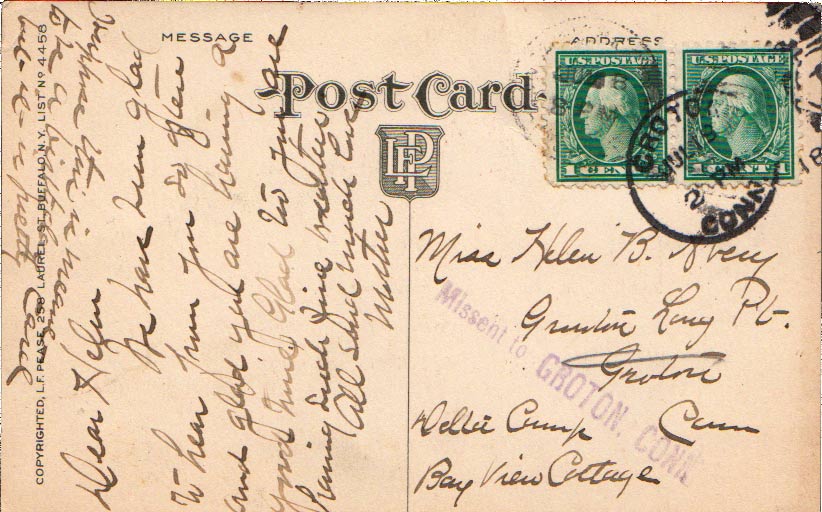 MESSAGE
ADDRESS
Post Card
LFP
COPYRIGHTED, L.F. PEASE, 258 LAUREL ST. BUFFALO, N.Y. LIST Nº 4458
Dear Helen
We have been glad
to hear from you so often
and glad you are having a
good time. Glad too you are
having such fine weather
All send much love
Mother
this is meant
to be a birthday
but is a pretty card
U.S. POSTAGE
1 CENT
U.S. POSTAGE
1 CENT
GROTON
JUL 19
2 PM
CONN.
18
Miss Helen B. Avery
Groton Long Pt.
Groton
Conn
Missent to GROTON, CONN
Camp
Bay View Cottage